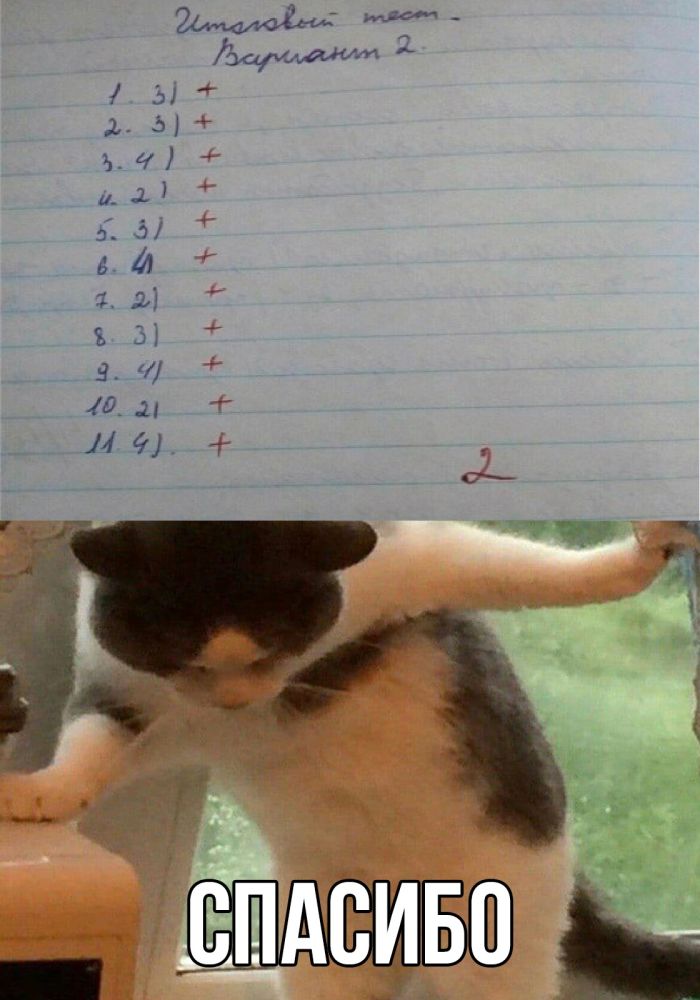 Итоговый тест.
Вариант 2.
1. 3) +
2. 3) +
3. 4) +
4. 2) +
5. 3) +
6. 4) +
7. 2) +
8. 3) +
9. 4) +
10. 2) +
11. 4). +
2
СПАСИБО